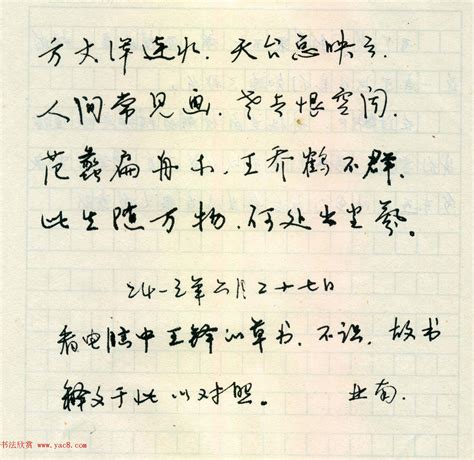 方丈浑连水.天台总映云.
人间常见画.老去恨空闻.
范蠡扁舟小.王乔鹤不群.
此生随万物,何处出尘氛。
二〇一三年六月二十七日
看电脑中王铎的草书.不识.故书
释文于此以对照。
书法欣赏 www.yac8.com